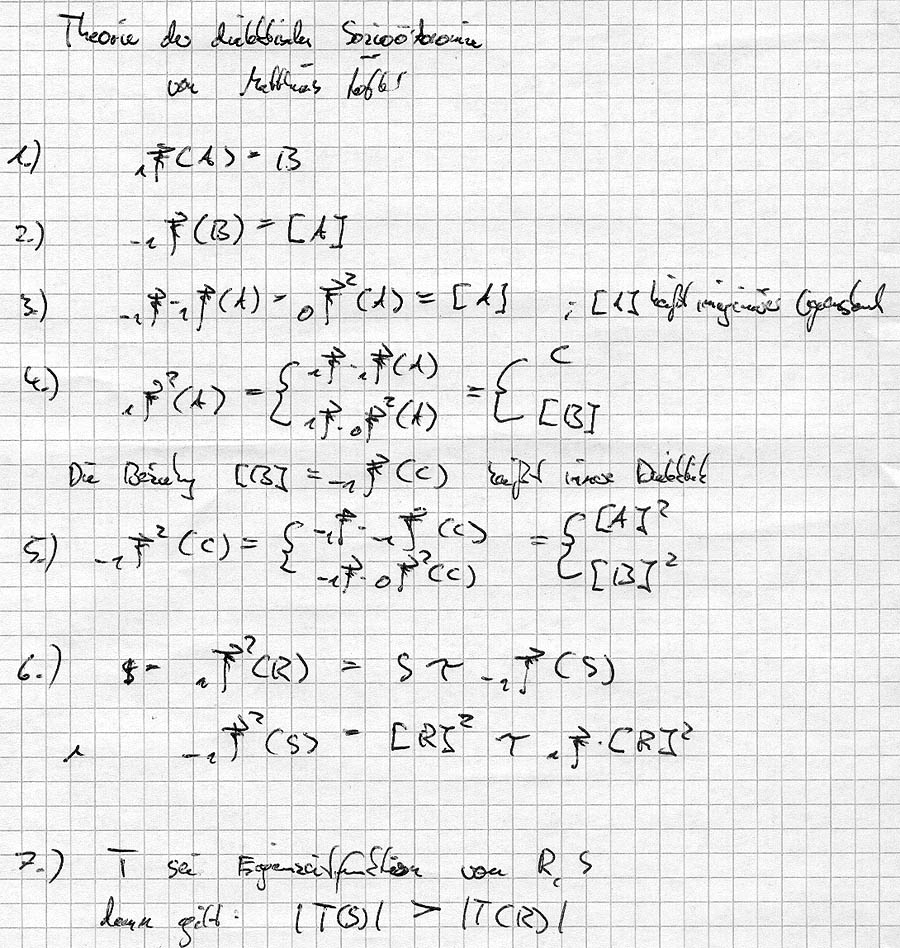 Theorie der dialektischen Sozioökonomie
von Matthias
1.) ₁f⃗(A) = B
2.) ₋₁f⃗(B) = [A]
3.) ₋₁f⃗·₁f⃗(A) = ₀f⃗²(A) = [A] ; [A] heißt imaginärer Gegenstand
4.) ₁f⃗²(A) = { ₁f⃗·₁f⃗(A) = { C
₁f⃗·₀f⃗²(A) [B]
Die Beziehung [B] = ₋₁f⃗(C) heißt innere Dialektik
5.) ₋₁f⃗²(C) = { ₋₁f⃗·₋₁f⃗(C) = { [A]²
₋₁f⃗·₀f⃗²(C) [B]²
6.) ₁f⃗²(R) = S ~ ₋₁f⃗(S)
₁ ₋₁f⃗²(S) = [R]² ~ ₁f⃗·[R]²
7.) T sei Eigenzeitfunktion von R, S
dann gilt: |T(S)| > |T(R)|